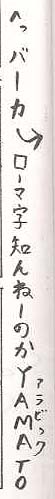 へっバーカ〜ローマ字知んねーのかYAMATO
アラビック